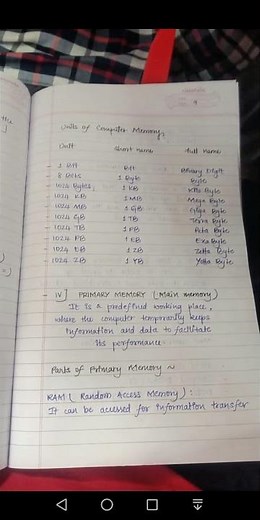 Units of Computer Memory,
Unit short name full name
- 1 Bit Bit Binary Digit
- 8 Bits 1 Byte Byte
- 1024 Bytes, 1 KB Kilo Byte
- 1024 KB 1 MB Mega Byte
- 1024 MB 1 GB Giga Byte
- 1024 GB 1 TB Terra Byte
- 1024 TB 1 PB Peta Byte
- 1024 PB 1 EB Exa Byte
- 1024 EB 1 ZB Zetta Byte
- 1024 ZB 1 YB Yotta Byte
- iv] PRIMARY MEMORY (Main memory)
It is a predefined working place,
where the computer temporarily keeps
information and data to facilitate
its performance
Parts of Primary Memory ~
RAM ( Random Access Memory ) :
It can be accessed for information transfer